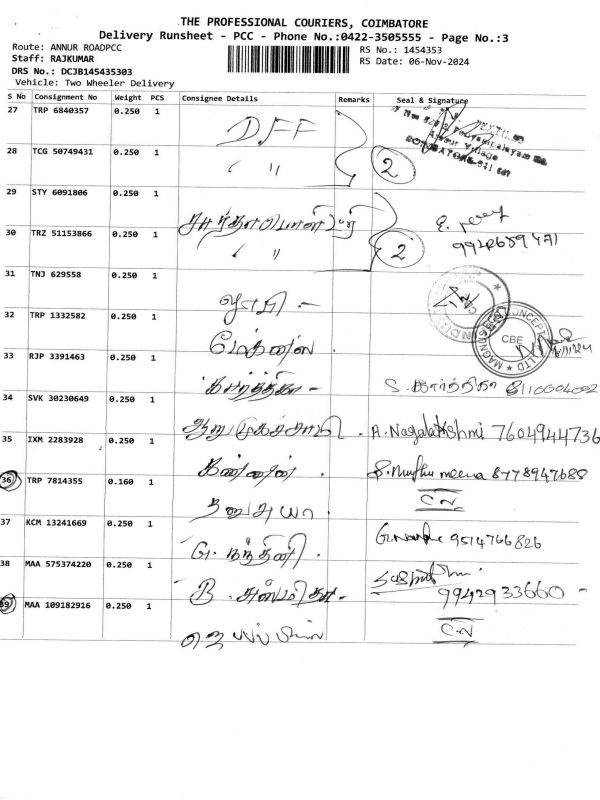 THE PROFESSIONAL COURIERS, COIMBATORE
Delivery Runsheet - PCC - Phone No.:0422-3505555 - Page No.:3
Route: ANNUR ROADPCC
RS No.: 1454353
Staff: RAJKUMAR
RS Date: 06-Nov-2024
DRS No.: DCJB145435303
Vehicle: Two Wheeler Delivery
S No Consignment No Weight PCS Consignee Details Remarks Seal & Signature
27 TRP 6840357 0.250 1 DFF
28 TCG 50749431 0.250 1 " 2
29 STY 6091806 0.250 1
30 TRZ 51153866 0.250 1 " 2
31 TNJ 629558 0.250 1
32 TRP 1332582 0.250 1 CBE
33 RJP 3391463 0.250 1 கார்த்திகா - S. கார்த்திகா
34 SVK 30230649 0.250 1 ஆறுமுகச்சாமி . A. Nagalakshmi 7604944736
35 IXM 2283928 0.250 1 கண்ணன் . 8778947688
36 TRP 7814355 0.160 1 தனுசுயா .
37 KCM 13241669 0.250 1 G. நந்தினி . 9514766826
38 MAA 575374220 0.250 1 9942933660 -
39 MAA 109182916 0.250 1